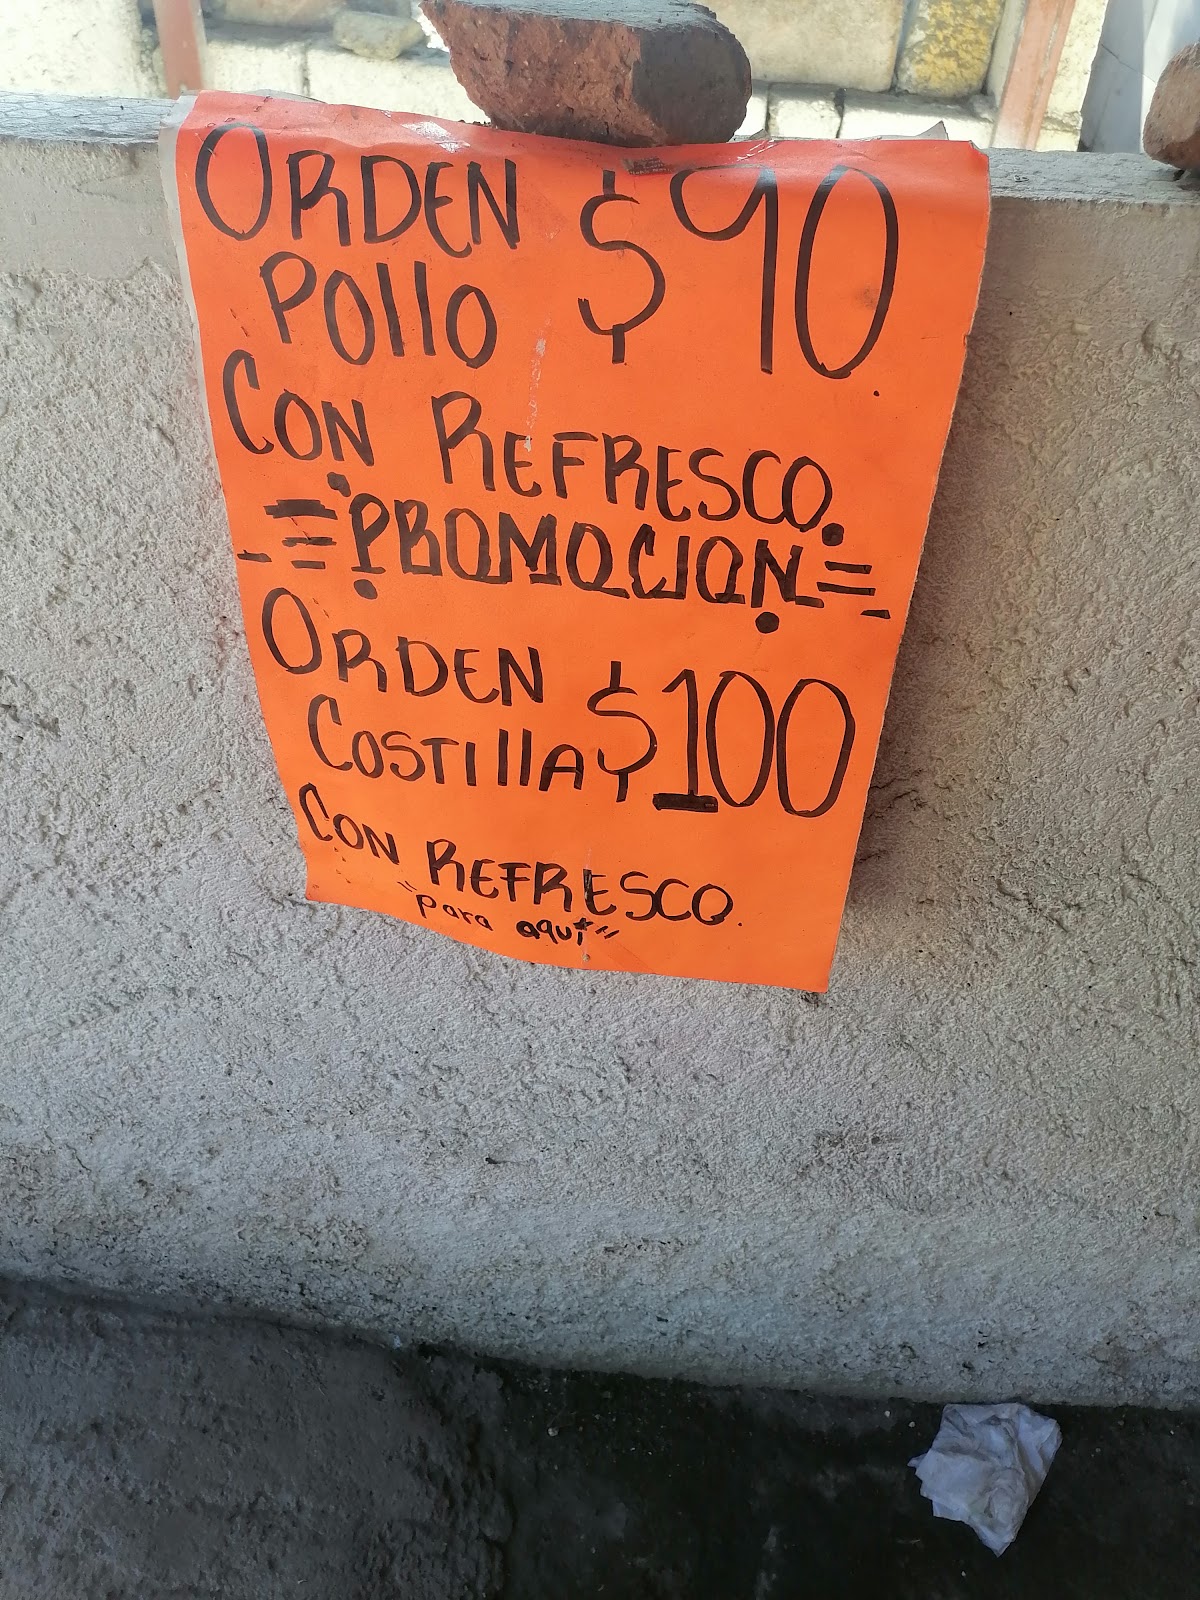 ORDEN $90
POllO
CON REFRESCO.
=PROMOCION=
ORDEN $100
COSTIllA
CON REFRESCO.
"para aqui"